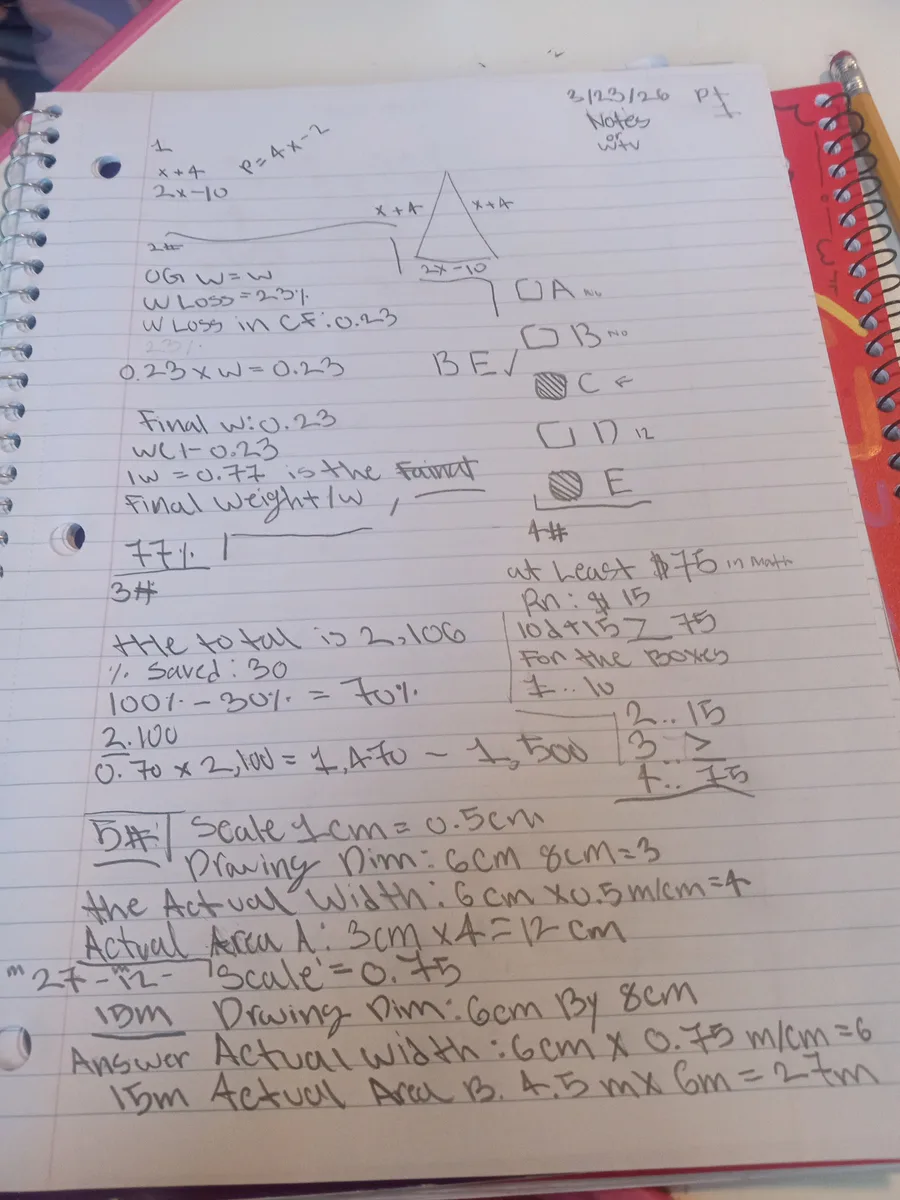 3/23/26 P1
Notes
or
wtv
1
x+4
2x-10
P=4x-2
x+4 x+4
2x-10
2#
OG W=W
W Loss=23%
W Loss in CF:0.23
23%
0.23×W=0.23
Final W:0.23
W(1-0.23
1W=0.77 is the
Final Weight/W
77%
□ A No
□ B No
B E ✓
C
□ D 12
E
3#
the total is 2,106
% Saved: 30
100%-30% = 70%
2.100
0.70 × 2,100 = 1,470 - 1,500
4#
at Least $75 in Math
Rn: $15
10d+15 ≥ 75
For the Boxes
1.. 10
2.. 15
3.. ≥
4.. 75
5# Scale 1cm = 0.5cm
Drawing Dim: 6cm 8cm=3
the Actual Width: 6cm ×0.5m/cm=4
Actual Area A: 3cm ×4=12cm
m 27-m12- Scale = 0.75
15m Drwing Dim: 6cm By 8cm
Answer Actual Width: 6cm × 0.75 m/cm=6
15m Actual Area B. 4.5 m× 6m = 27m